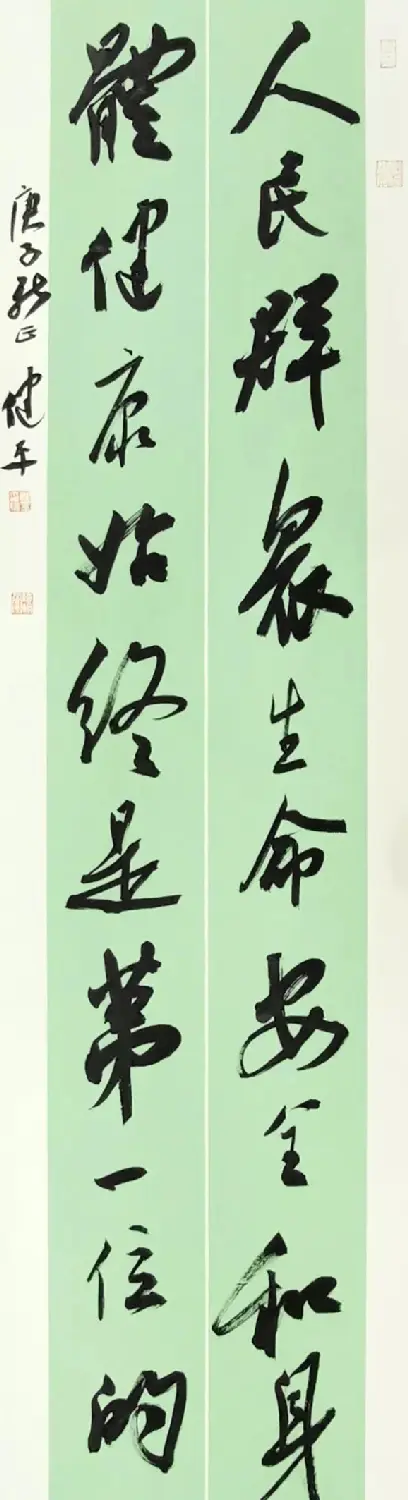 人民群眾生命安全和身
體健康始終是第一位的
庚子新正健平